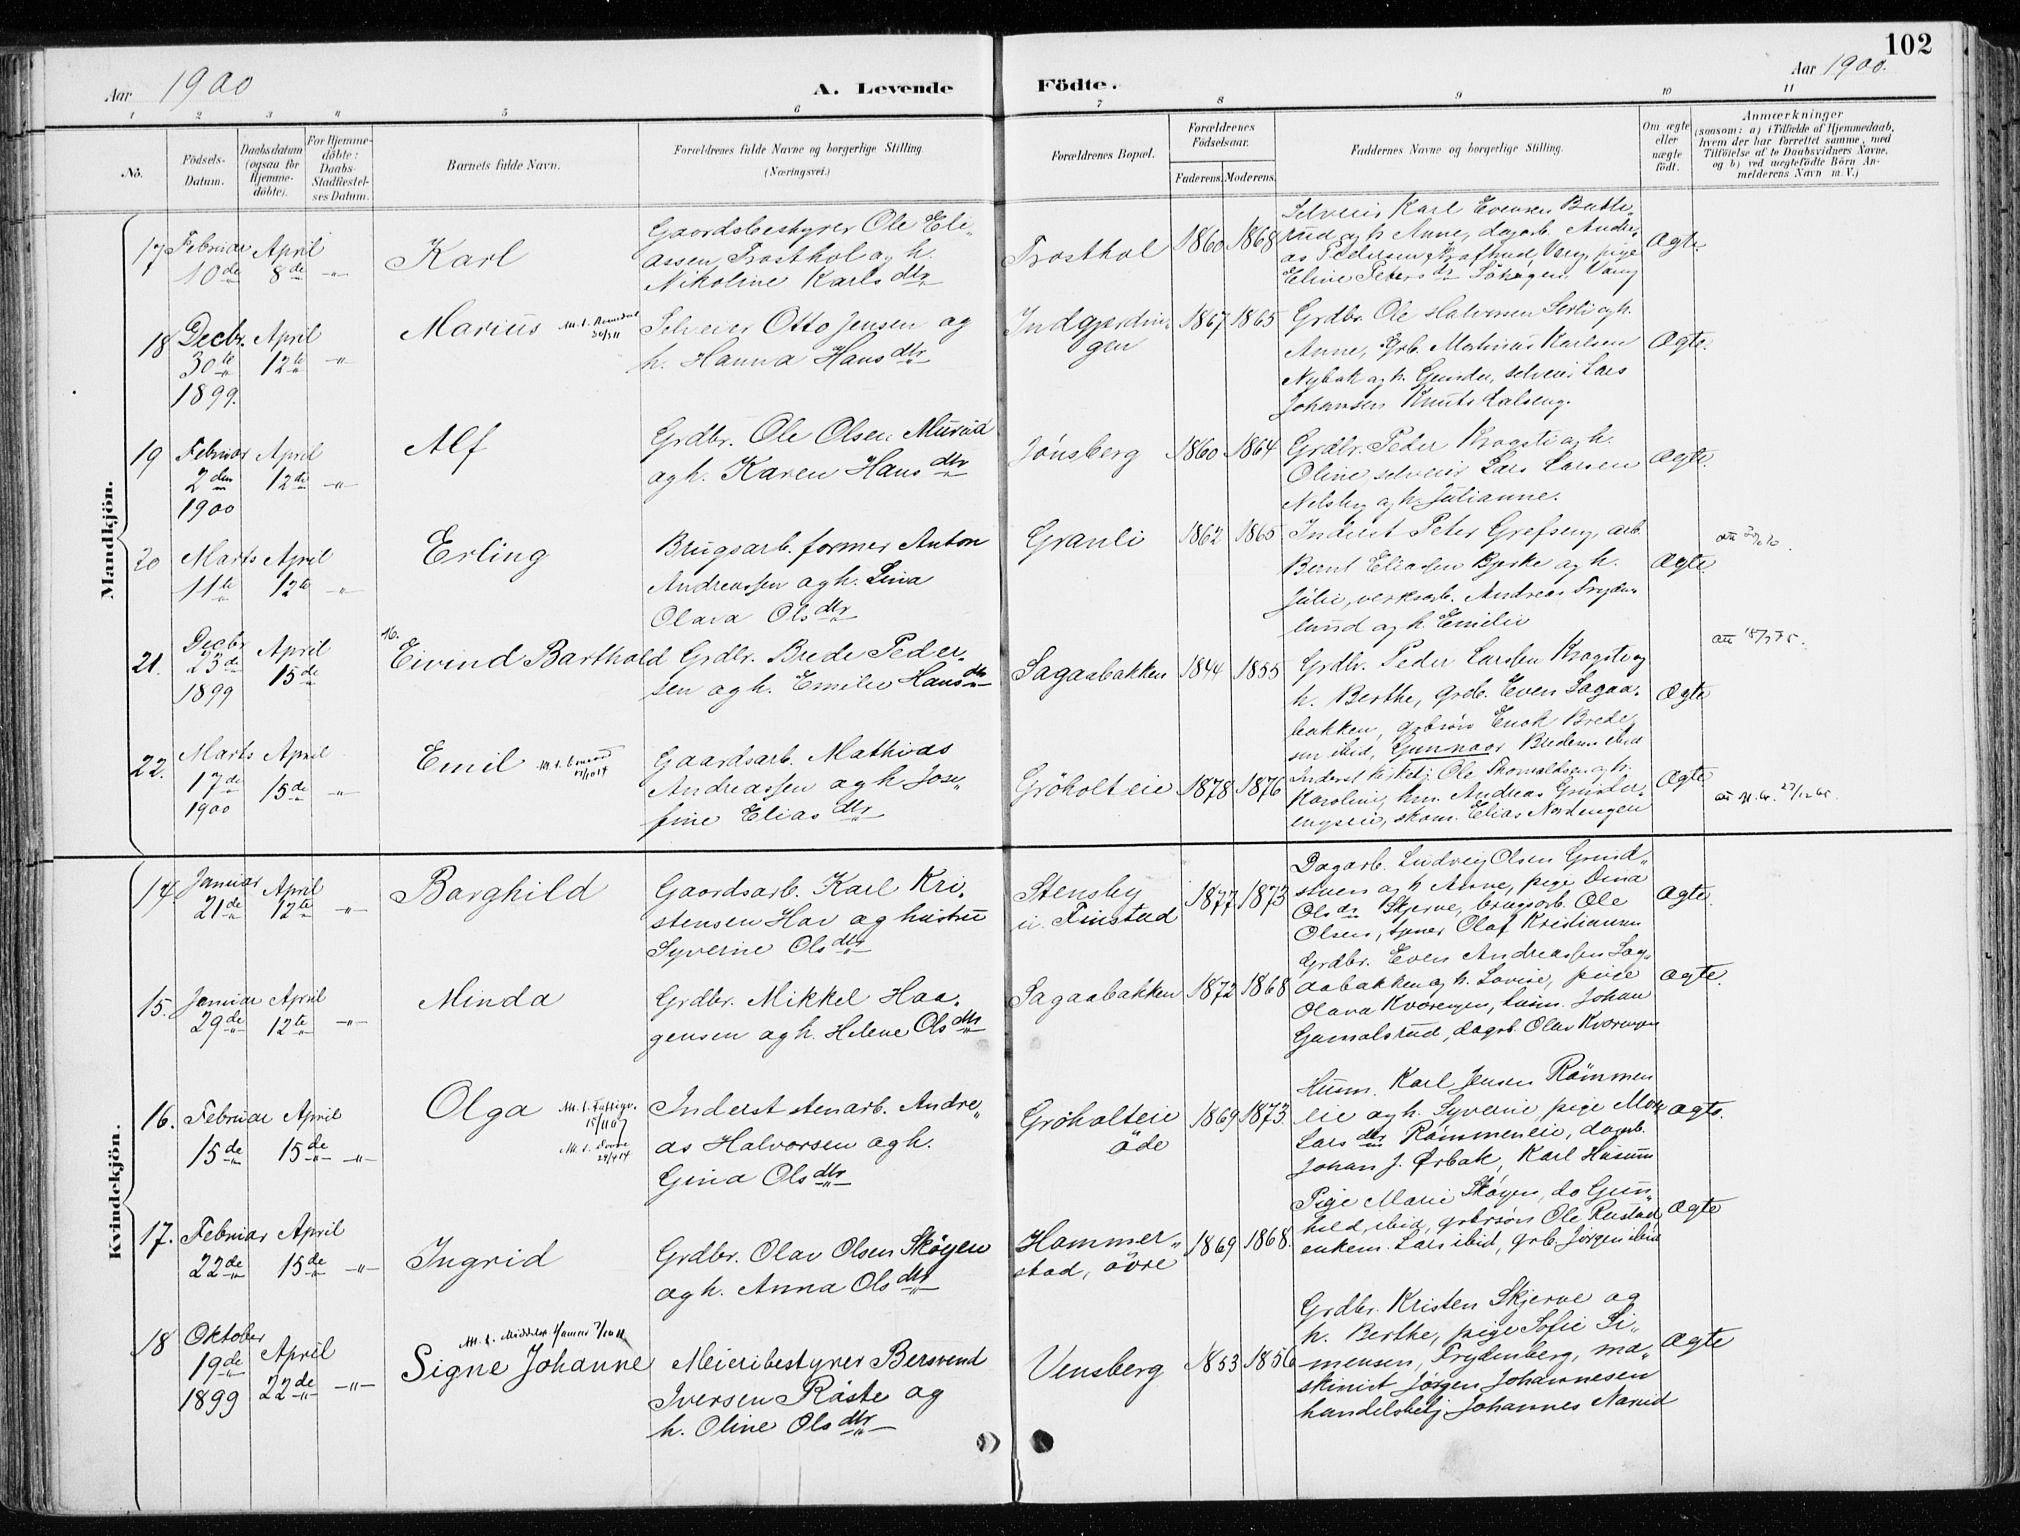 102
Aar 1900
A. Levende Födte.
Aar 1900.
1 2 3 4 5 6 7 8 9 10 11
No.
Födsels-Datum.
Daabsdatum (ogsaa for Hjemme-döbte).
For Hjemme-döbte: Daabs-Stadfæstel-ses Datum.
Barnets fulde Navn.
Forældrenes fulde Navne og borgerlige Stilling (Næringsvei.)
Forældrenes Bopæl.
Forældrenes Födselsaar.
Faderens. Moderens.
Faddernes Navne og borgerlige Stilling.
Om ægte eller uægte födt.
Anmærkninger
(saasom: a) i Tilfælde af Hjemmedaab,
hvem der har forrettet samme, med
Tilföielse af to Daabsvidners Navne,
og b) ved uægtefödte Börn An-
melderens Navn m. V.)
Mandkjön.
17 Februar 10de April 8de -"-
Karl
Gaardsbestyrer Ole Eli-
assen Trosthol og h.
Nikoline Karlsdtr
Trosthol 1860 1868
Selveier Karl Evensen Butte-
rud og h. Anne, dagarb. Andre-
as Pedersen Vang, pige
Eline Petersdtr Vang
Ægte.
18 Decbr. 30te 1899. April 12te -"-
Marius
Selveier Otto Jensen og
h. Hanna Hansdtr
Indgjerdin-
gen 1867 1865
Grdbr. Ole Halvorsen Serli og h.
Anne, Grb. Martinus Karlsen
Nybak og h. Gunda, selveier Lars
Johansen Knutstalseng.
Ægte.
19 Februar 2den 1900 April 12te -"-
Alf
Grdbr. Ole Olsen Murud
og h. Karen Hansdtr
Jónsberg 1860 1864
Grdbr. Peder Krogsti og h.
Oline, selveier Lars Larsen
Nelsby og h. Julianne.
Ægte.
20 Marts 11te April 12te -"-
Erling
Brugsarb. former Anton
Andreassen og h. Lina
Olava Olsdtr
Granli 1862 1865
Inderst Peter Grefseng, arb.
Bernt Eliassen Bjerke og h.
Julie, verksarb. Andreas Fryden-
lund og h. Emilie
Ægte.
21. Decbr 23de 1899 April 15de
Eivind Barthold
Grdbr. Brede Peder-
sen og h. Emilie Hansdtr
Sagaabakken 1844 1855
Grdbr. Peder Larsen Krogsti og
h. Berthe, grdb. Even Sagaa-
bakken, grbrsøn Enok Brede-
sen ibid, Gunnar Bredesen ibid
Ægte
22. Marts 17de 1900 April 15de -"-
Emil
Gaardsarb. Mathias
Andreassen og h. Jose-
fine Eliasdtr
Gröholteie 1878 1876
Inderst Ole Thorvaldsen og h.
Karoline, hm. Andreas Grinder-
engseie, skom. Elias Nordengen
Ægte
Kvindekjön.
14. Januar 21de April 12te -"-
Borghild
Gaardsarb. Karl Kri-
stensen Hov og hustru
Syverine Olsdtr
Stensby
u. Finstad 1877 1873
Dagarb. Ludvig Olsen Grind-
stuen og h. Anne, pige Dina
Olsdtr Skjerve, brugsarb. Ole
Olsen, tjener Olaf Kristiansen
Ægte.
15. Januar 29de April 12te -"-
Minda
Grdbr. Mikkel Haa-
gensen og h. Helene Olsdtr
Sagaabakken 1872 1868
Grdbr. Even Andreassen Sag-
aabakken og h. Lovise, pige
Olava Kværengen, Johan
Gamalstrud, dagarb. Olav Kværengen
Ægte.
16. Februar 15de April 15de -"-
Olga
Inderst stenarb. Andre-
as Halvorsen og h.
Gina Olsdtr
Gröholteie
öde 1869 1873.
Husm. Karl Jensen Römmen
eie og h. Syverine, pige
Larsdtr Römmeneie, dagarb.
Johan J. Ørbak, Karl
Ægte.
17. Februar 22de April 15de -"-
Ingrid
Grdbr. Olav Olsen Skøyen
og h. Anna Olsdtr
Hammer-
stad, övre 1869 1868.
Pige Marie Skøyen, do Gun-
hild ibid, grbrsøn Ole Rustad,
enkem. Lars ibid, grb. Jørgen ibid
Ægte
18 Oktober 19de 1899 April 22de -"-
Signe Johanne
Meieribestyrer Bersvend
Iversen Röste og
h. Oline Olsdtr
Vensberg 1853 1856
Grdbr. Kristen Skjerve og
h. Berthe, pige Sofie Si-
mensen, Frydenberg, ma-
skinist Jörgen Johannesen
handelsbetj. Johannes Narud
Ægte